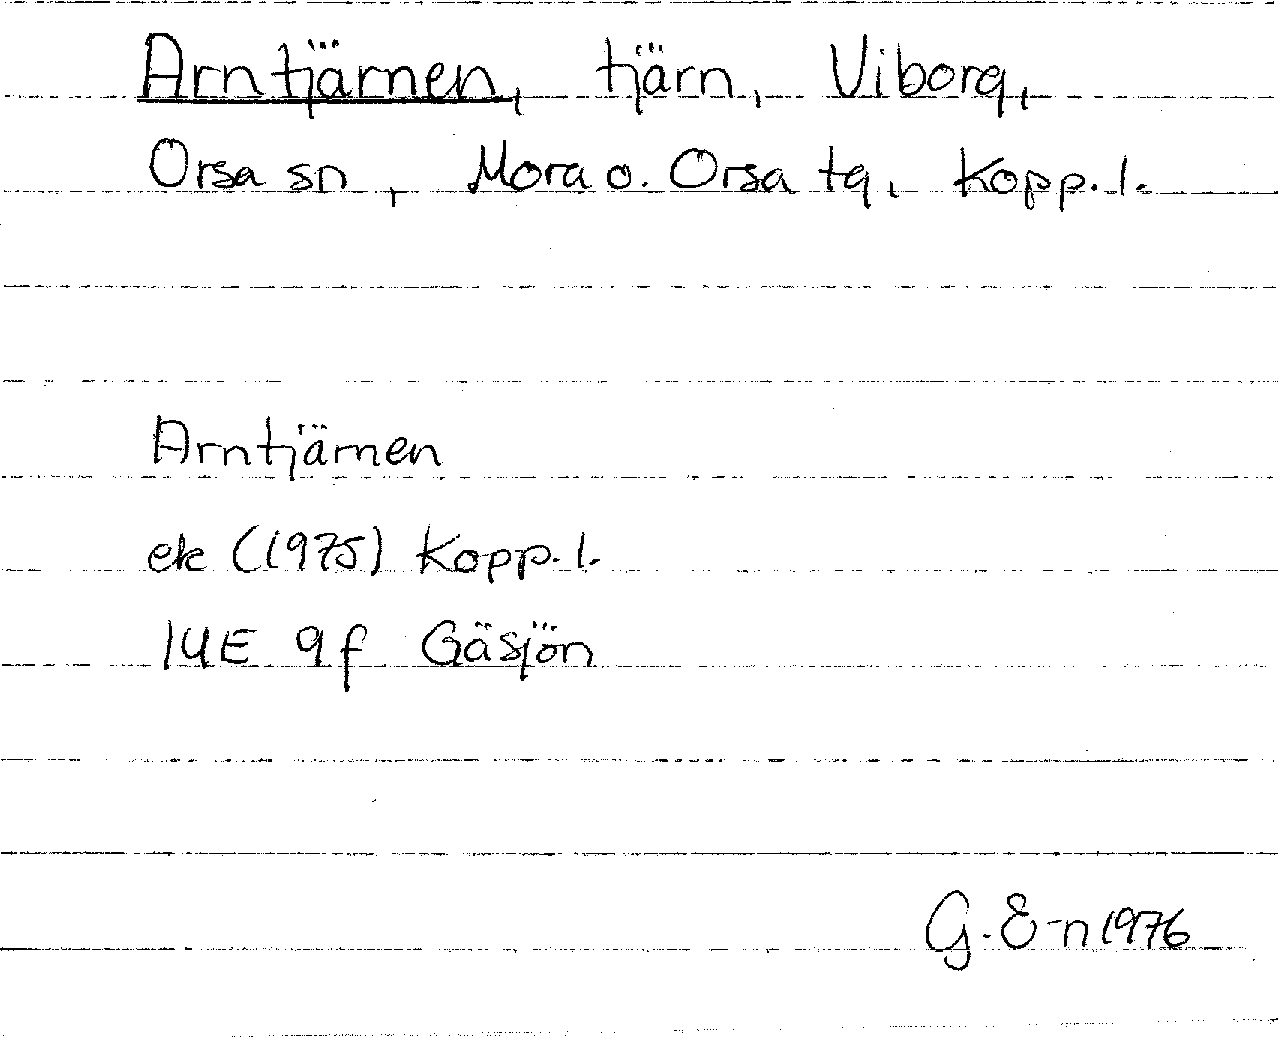 Arntjärnen, tjärn, Viborg,
Orsa sn, Mora o. Orsa tg, Kopp. l.
Arntjärnen
ek (1975) Kopp. l.
14E 9f Gäsjön
G. E-n 1976